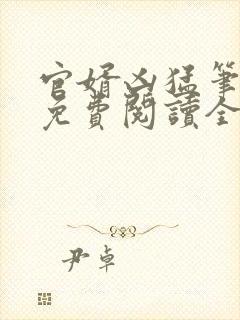 官婿凶猛筆
免費閱讀全
尹卓